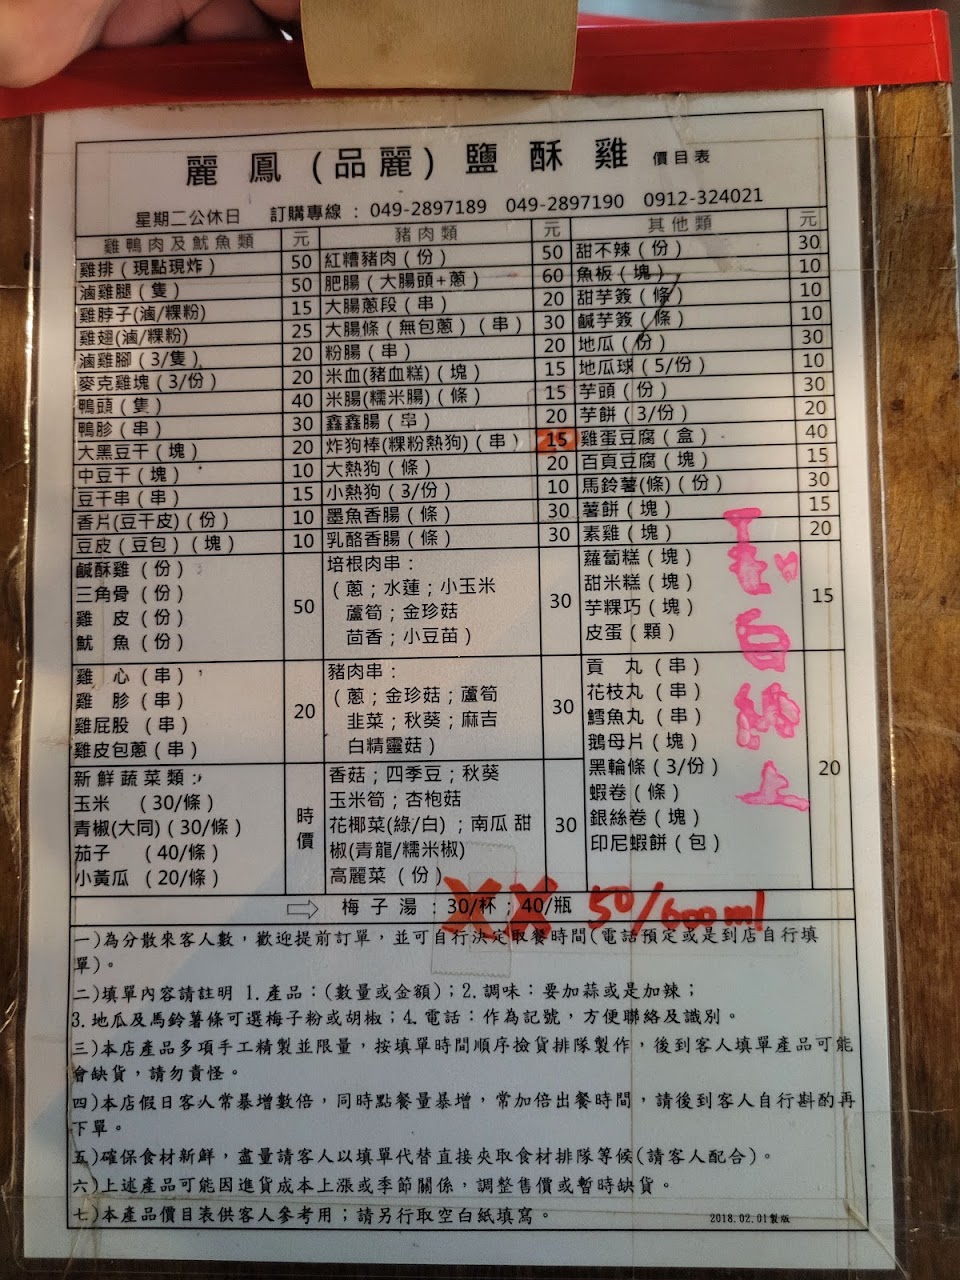 麗鳳(品麗)鹽酥雞 價目表
星期二公休日 訂購專線：049-2897189 049-2897190 0912-324021
雞鴨肉及魷魚類 元
雞排（現點現炸） 50
滷雞腿（隻） 50
雞脖子(滷/粿粉) 15
雞翅(滷/粿粉) 25
滷雞腳（3/隻） 20
麥克雞塊（3/份） 20
鴨頭（隻） 40
鴨胗（串） 30
大黑豆干（塊） 20
中豆干（塊） 10
豆干串（串） 15
香片(豆干皮)（份） 10
豆皮（豆包）（塊） 10
鹹酥雞（份）
三角骨（份）
雞 皮（份）
魷 魚（份）
50
雞 心（串）
雞 胗（串）
雞屁股（串）
雞皮包蔥（串）
20
新鮮蔬菜類：
玉米 （30/條）
青椒(大同)（30/條）
茄子 （40/條）
小黃瓜 （20/條）
時價
豬肉類 元
紅糟豬肉（份） 50
肥腸（大腸頭+蔥） 60
大腸蔥段（串） 20
大腸條（無包蔥）（串） 30
粉腸（串） 20
米血(豬血糕)（塊） 15
米腸(糯米腸)（條） 15
鑫鑫腸（串） 20
炸狗棒(粿粉熱狗)（串） 15
大熱狗（條） 20
小熱狗（3/份） 10
墨魚香腸（條） 30
乳酪香腸（條） 30
培根肉串：
（蔥；水蓮；小玉米
蘆筍；金珍菇
茴香；小豆苗）
30
豬肉串：
（蔥；金珍菇；蘆筍
韭菜；秋葵；麻吉
白精靈菇）
30
香菇；四季豆；秋葵
玉米筍；杏枹菇
花椰菜(綠/白)；南瓜 甜
椒(青龍/糯米椒)
高麗菜（份）
30
其他類 元
甜不辣（份） 30
魚板（塊） 10
甜芋簽（條） 10
鹹芋簽（條） 10
地瓜（份） 30
地瓜球（5/份） 10
芋頭（份） 30
芋餅（3/份） 20
雞蛋豆腐（盒） 40
百頁豆腐（塊） 15
馬鈴薯(條)（份） 30
薯餅（塊） 15
素雞（塊） 20
蘿蔔糕（塊）
甜米糕（塊）
芋粿巧（塊）
皮蛋（顆）
15
貢 丸（串）
花枝丸（串）
鱈魚丸（串）
鵝母片（塊）
黑輪條（3/份）
蝦卷（條）
銀絲卷（塊）
印尼蝦餅（包）
20
白紙上
⇨ 梅子湯：30/杯；40/瓶 50/600ml
一)為分散來客人數，歡迎提前訂單，並可自行決定取餐時間(電話預定或是到店自行填
單)。
二)填單內容請註明 1.產品：(數量或金額)；2.調味：要加蒜或是加辣；
3.地瓜及馬鈴薯條可選梅子粉或胡椒；4.電話：作為記號，方便聯絡及識別。
三)本店產品多項手工精製並限量，按填單時間順序撿貨排隊製作，後到客人填單產品可能
會缺貨，請勿責怪。
四)本店假日客人常暴增數倍，同時點餐量暴增，常加倍出餐時間，請後到客人自行斟酌再
下單。
五)確保食材新鮮，盡量請客人以填單代替直接夾取食材排隊等候(請客人配合)。
六)上述產品可能因進貨成本上漲或季節關係，調整售價或暫時缺貨。
七)本產品價目表供客人參考用；請另行取空白紙填寫。 2018.02.01製版